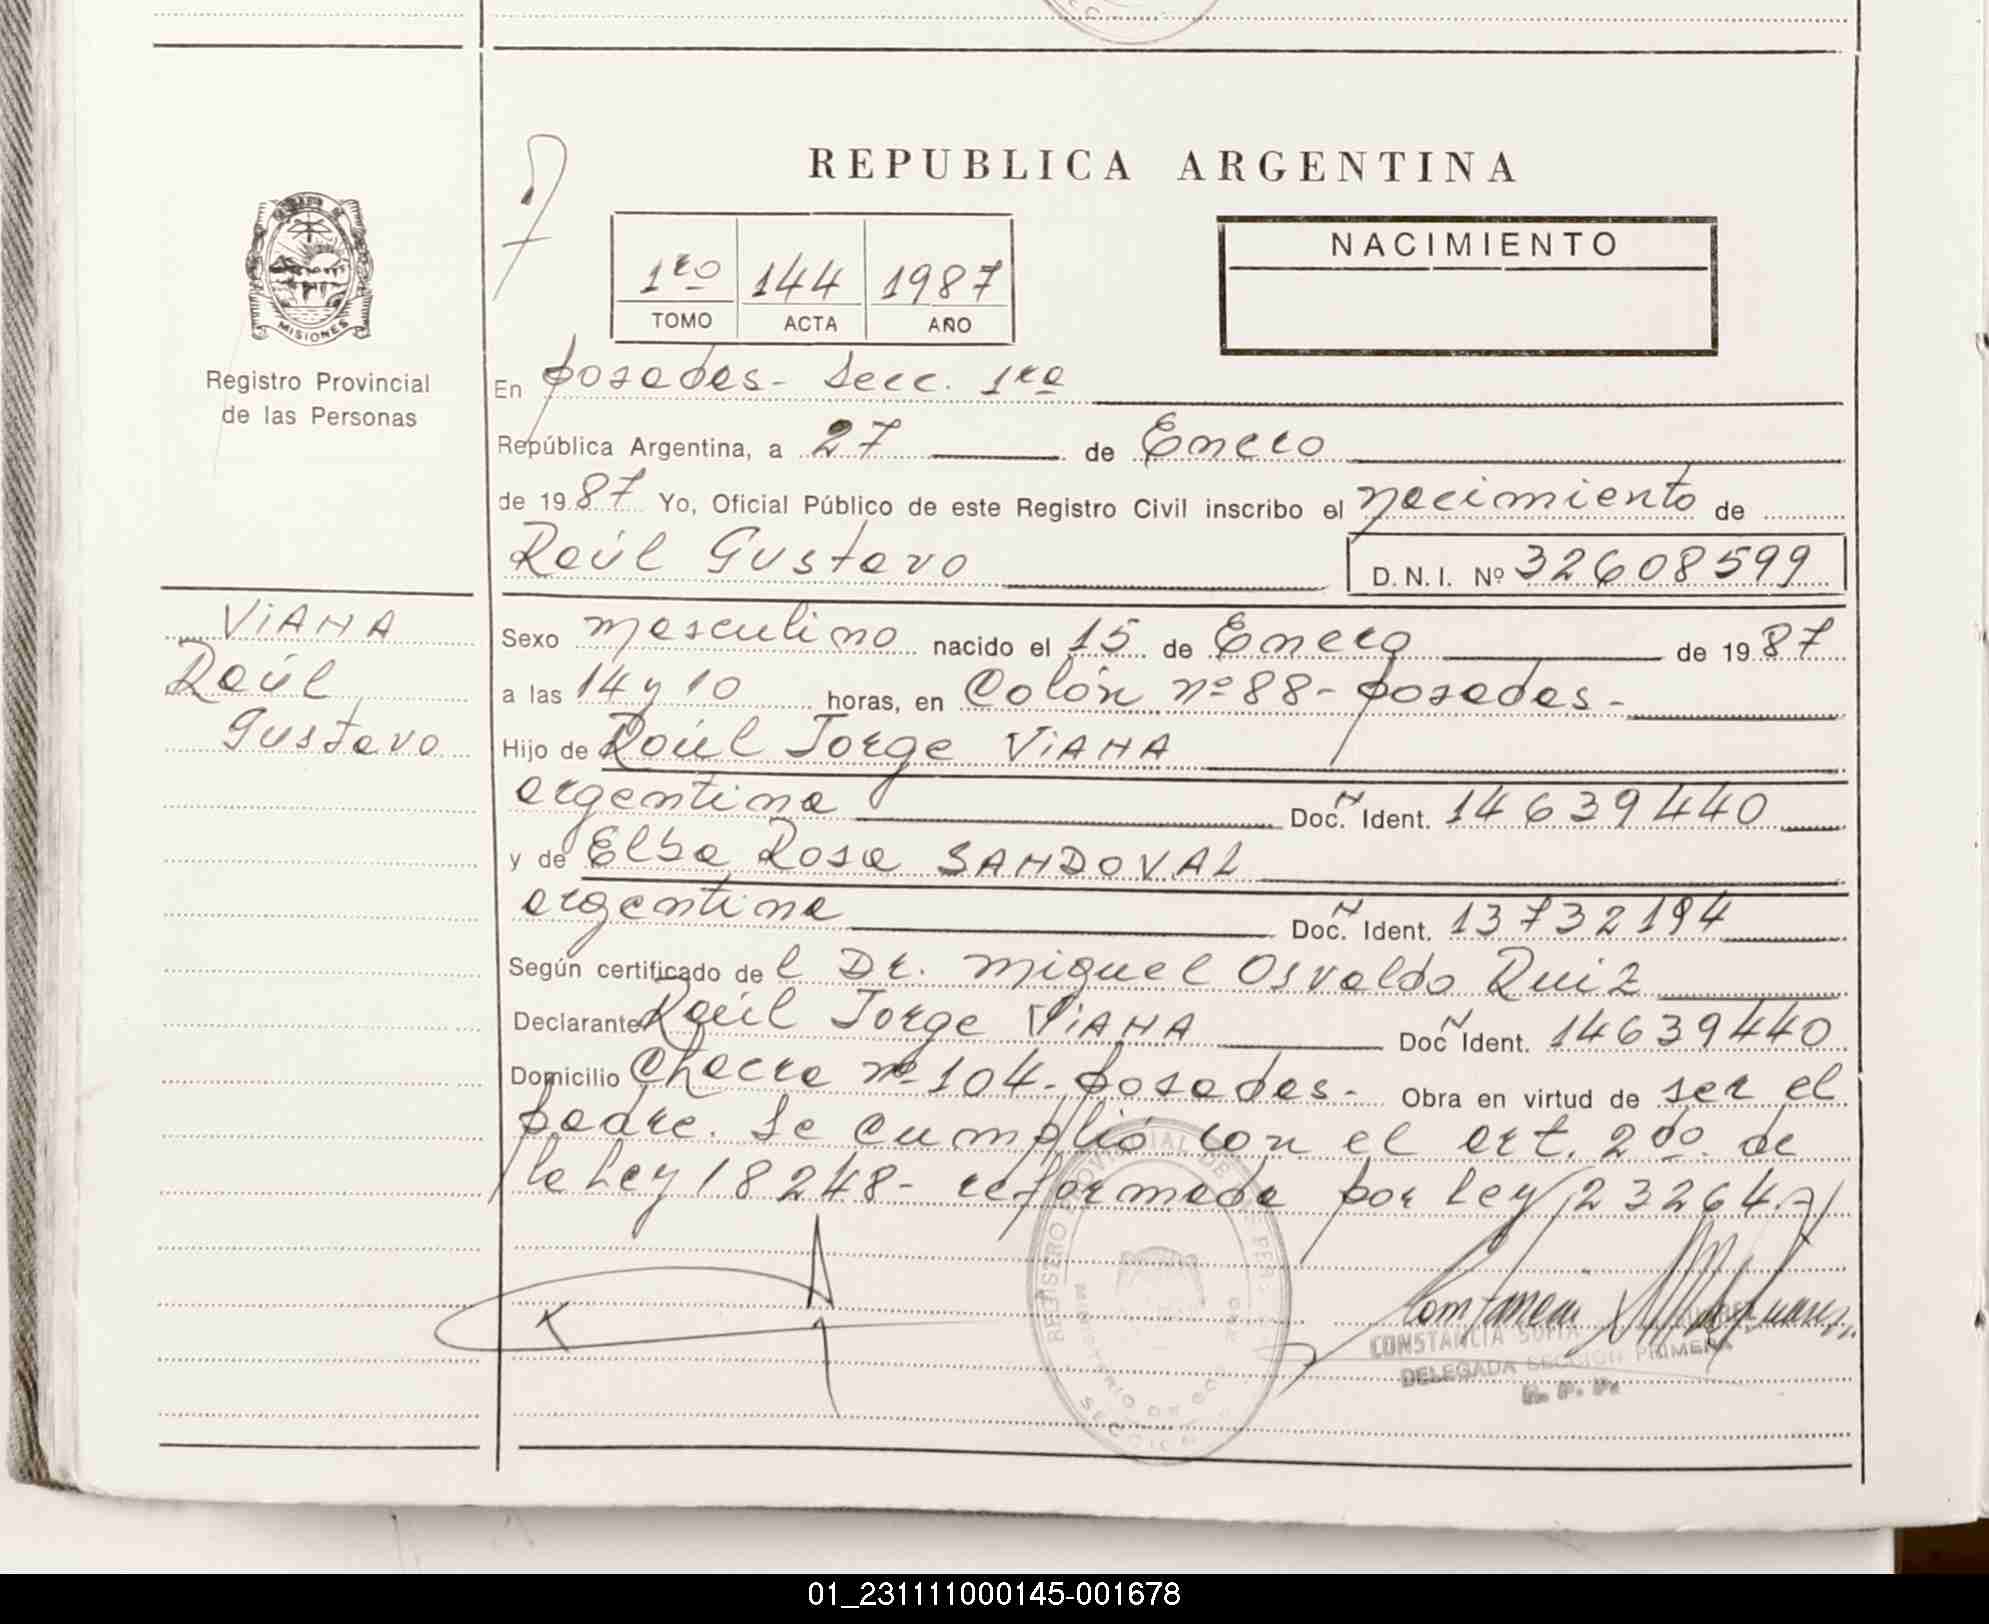 REPUBLICA ARGENTINA
NACIMIENTO
1ro 144 1987
TOMO ACTA AÑO
MISIONES
Registro Provincial
de las Personas
En Posadas - Secc. 1ra
República Argentina, a 27 de Enero
de 1987 Yo, Oficial Público de este Registro Civil inscribo el nacimiento de
Raúl Gustavo
D.N.I. Nº 32608599
VIANA
Raúl
Gustavo
Sexo masculino nacido el 15 de Enero de 1987
a las 14 y 10 horas, en Colón nº 88 - Posadas -
Hijo de Raúl Jorge VIANA
argentina Doc. N Ident. 14639440
y de Elba Rosa SANDOVAL
argentina Doc. N Ident. 13732194
Según certificado de l Dr. Miguel Osvaldo Ruiz
Declarante Raúl Jorge VIANA Doc N Ident. 14639440
Domicilio Chacra nº 104 - Posadas - Obra en virtud de ser el
padre. Se cumplió con el art. 2do. de
la Ley 18248 - reformada por Ley 23264.-
CONSTANCIA SOFIA
DELEGADA SECCION PRIMERA
R. P. P.
01_231111000145-001678